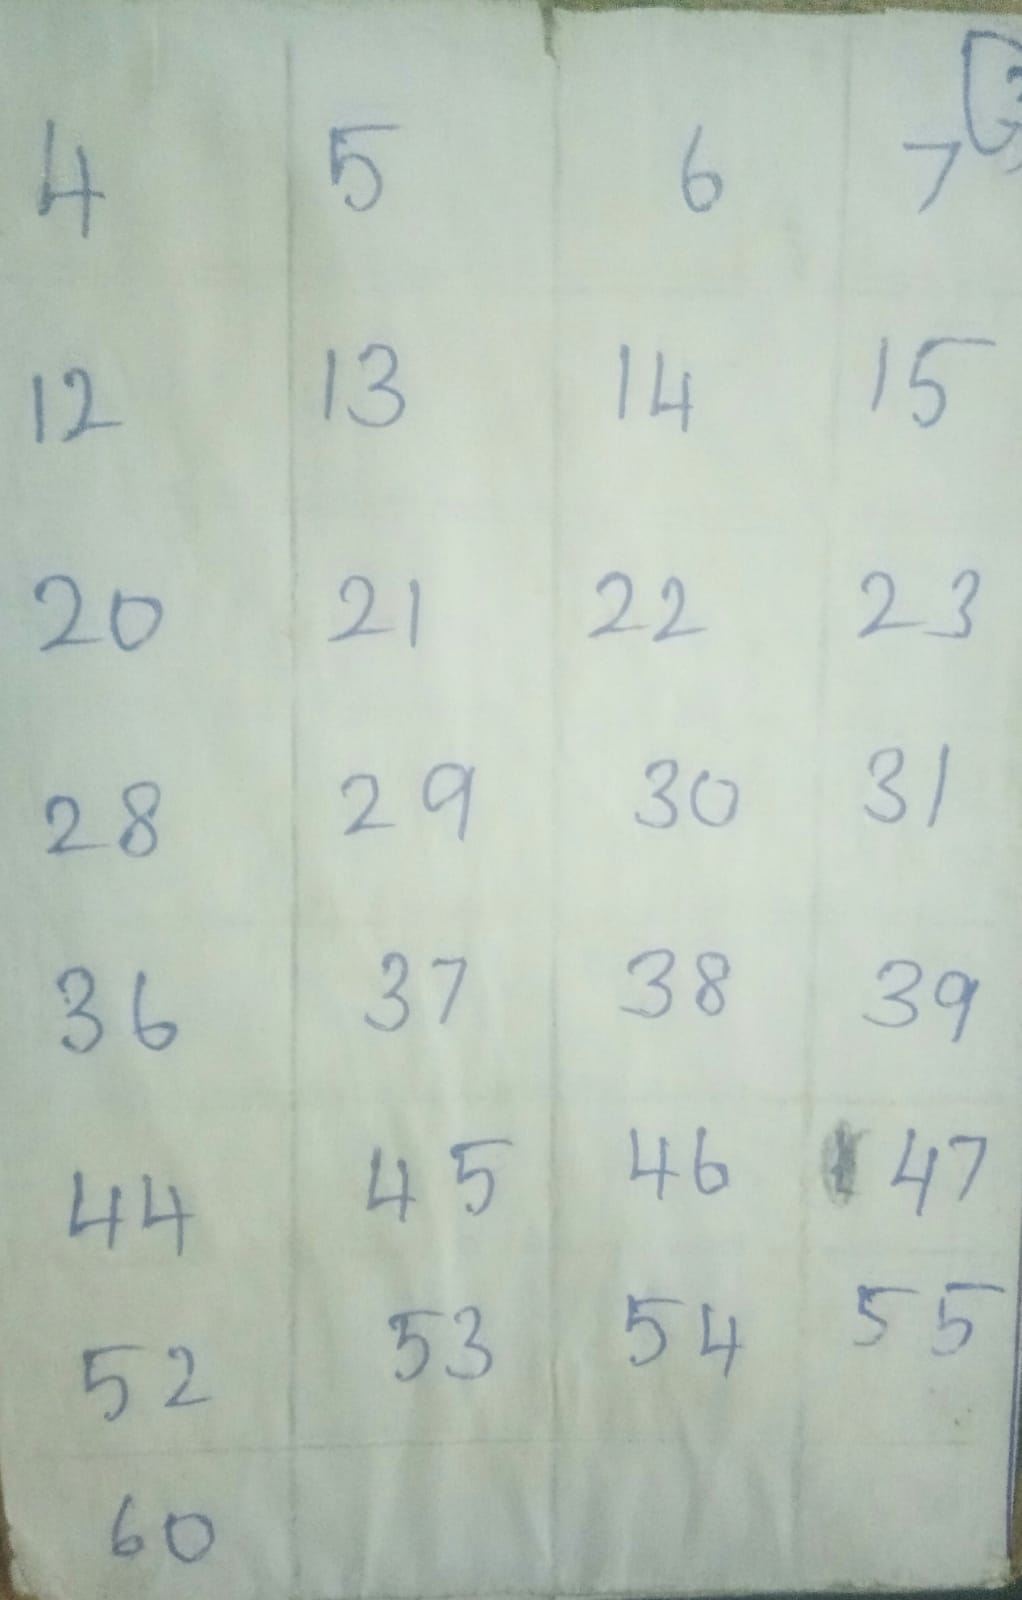 4 5 6 7
12 13 14 15
20 21 22 23
28 29 30 31
36 37 38 39
44 45 46 47
52 53 54 55
60